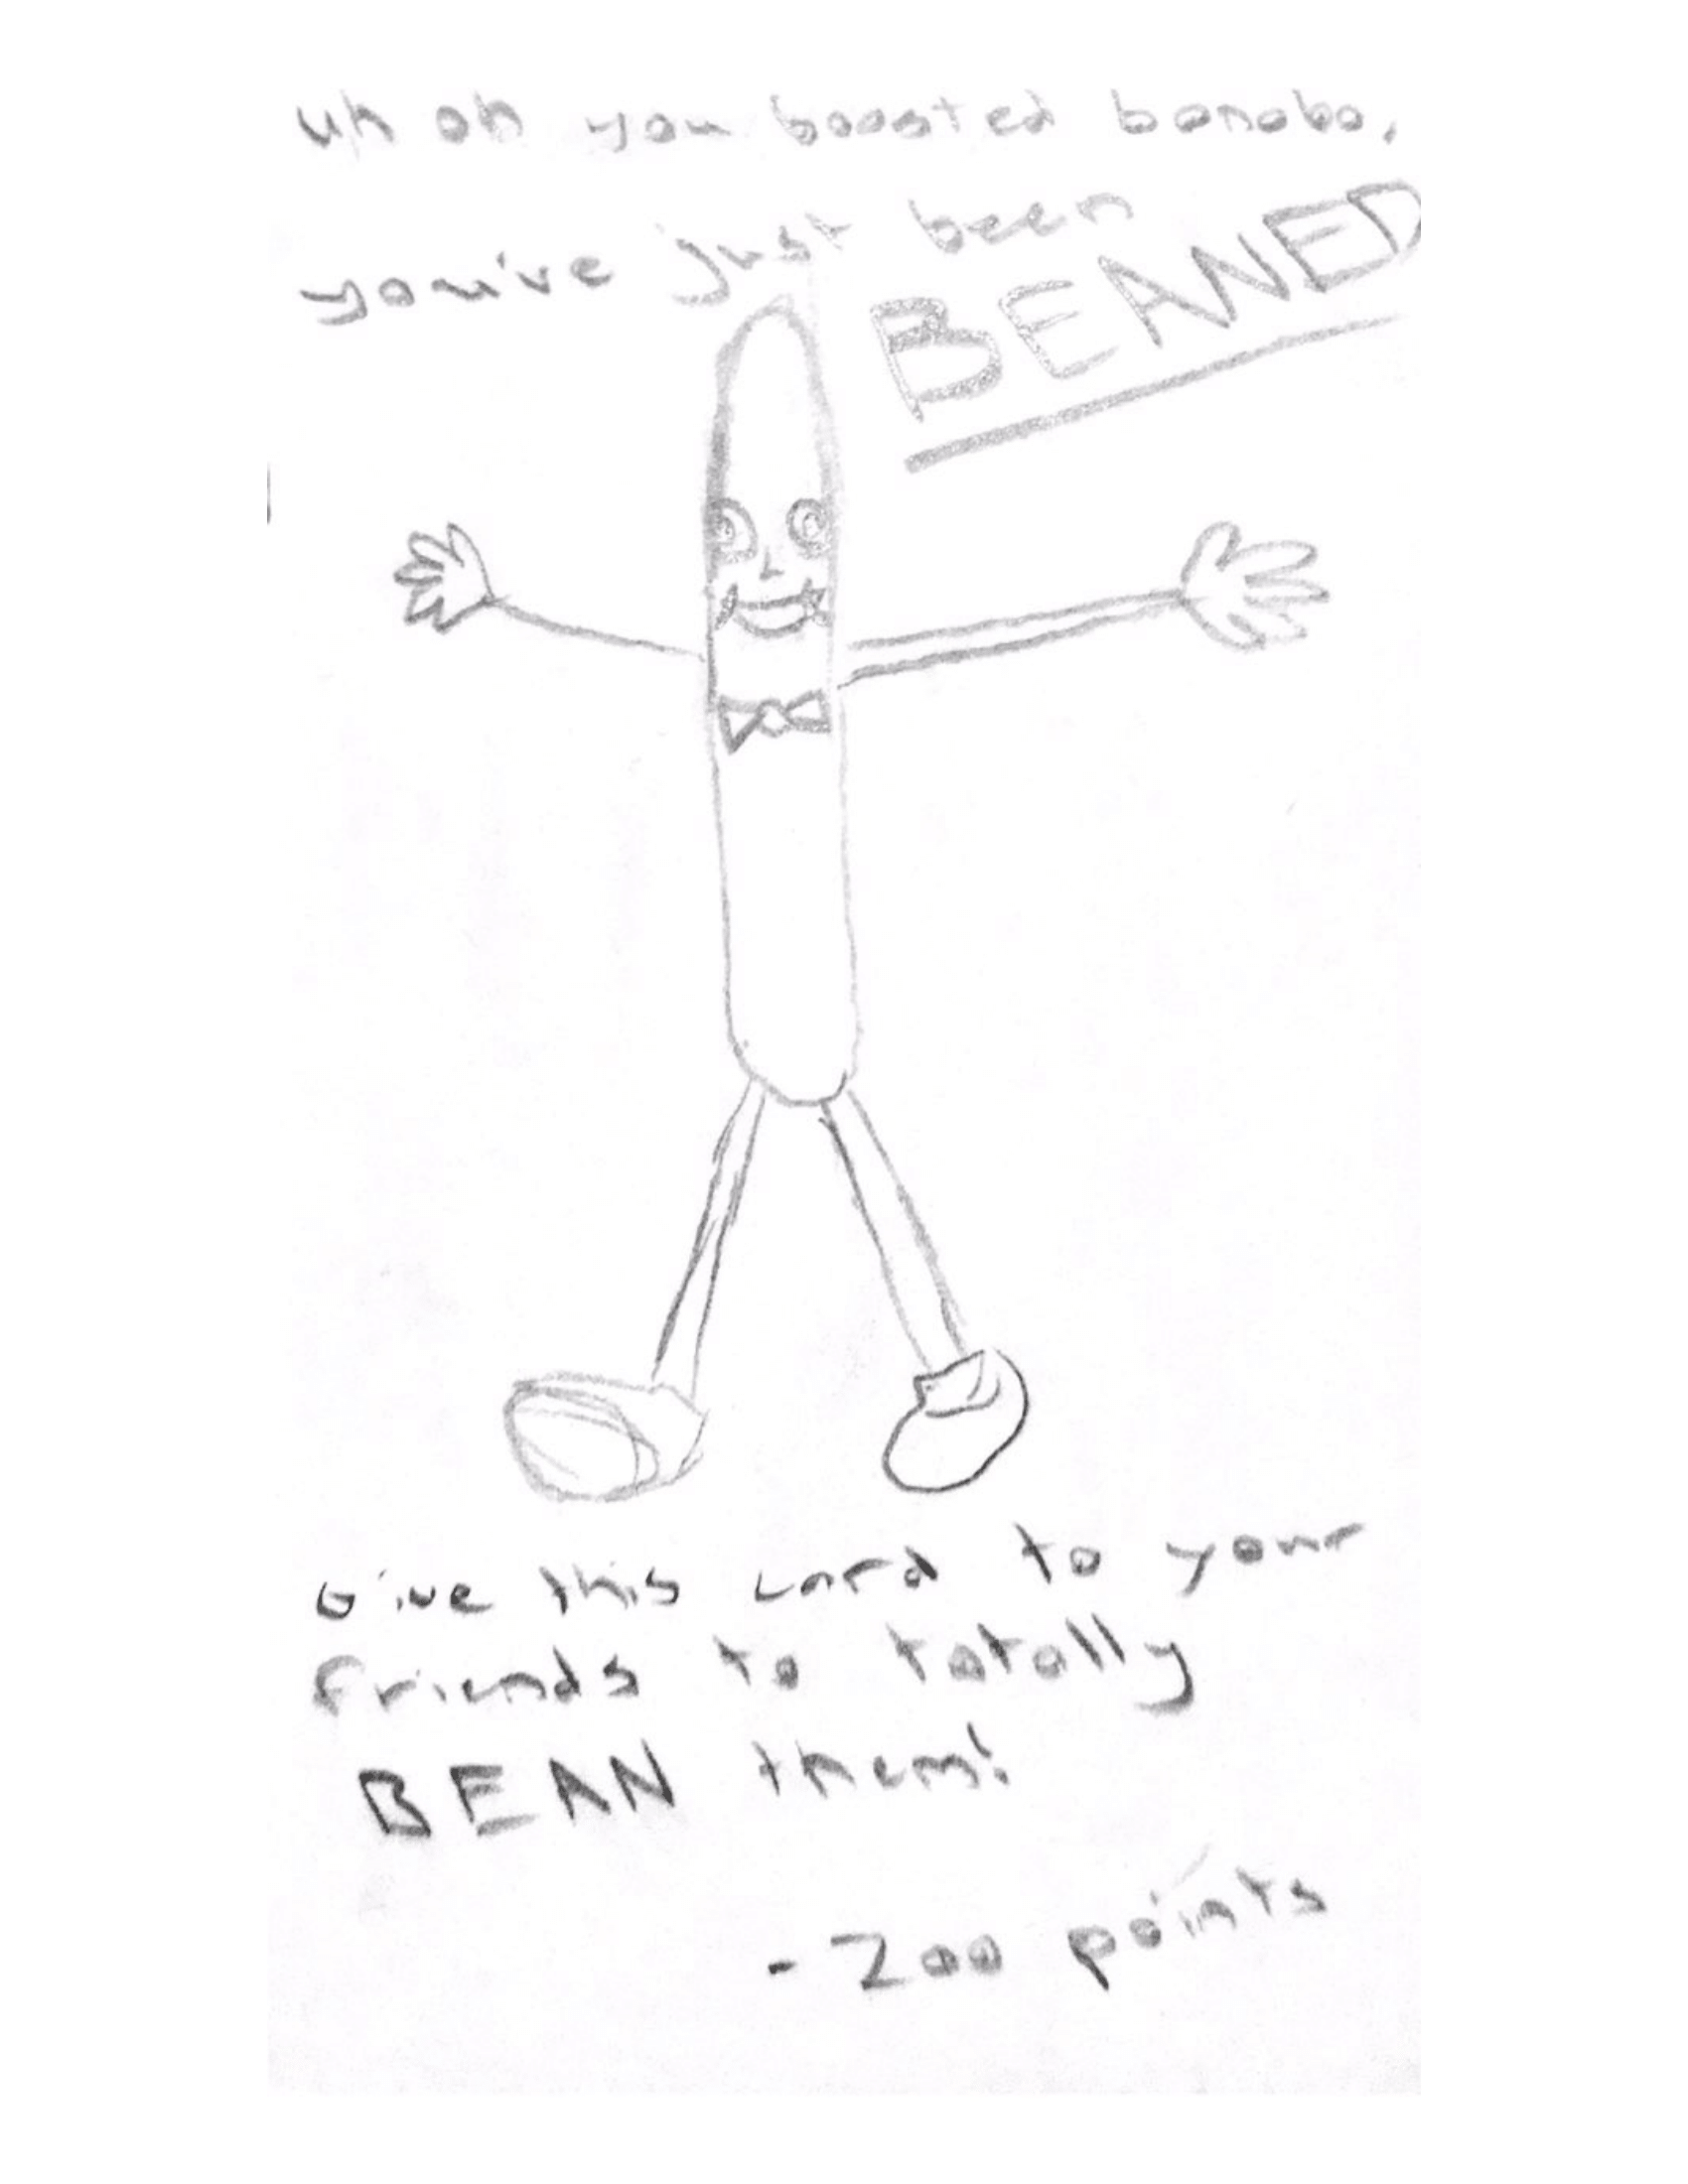 uh oh you boosted bonobo,
you've just been
BEANED
Give this card to your
friends to totally
BEAN them!
- 200 points